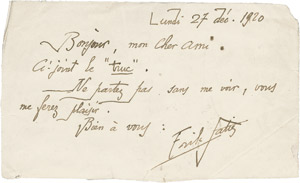 Lundi 27 déc. 1920
Bonjour, mon cher ami.
Ci-joint le "truc".
Ne partez pas sans me voir, vous
me ferez plaisir.
Bien à vous :
Erik Satie